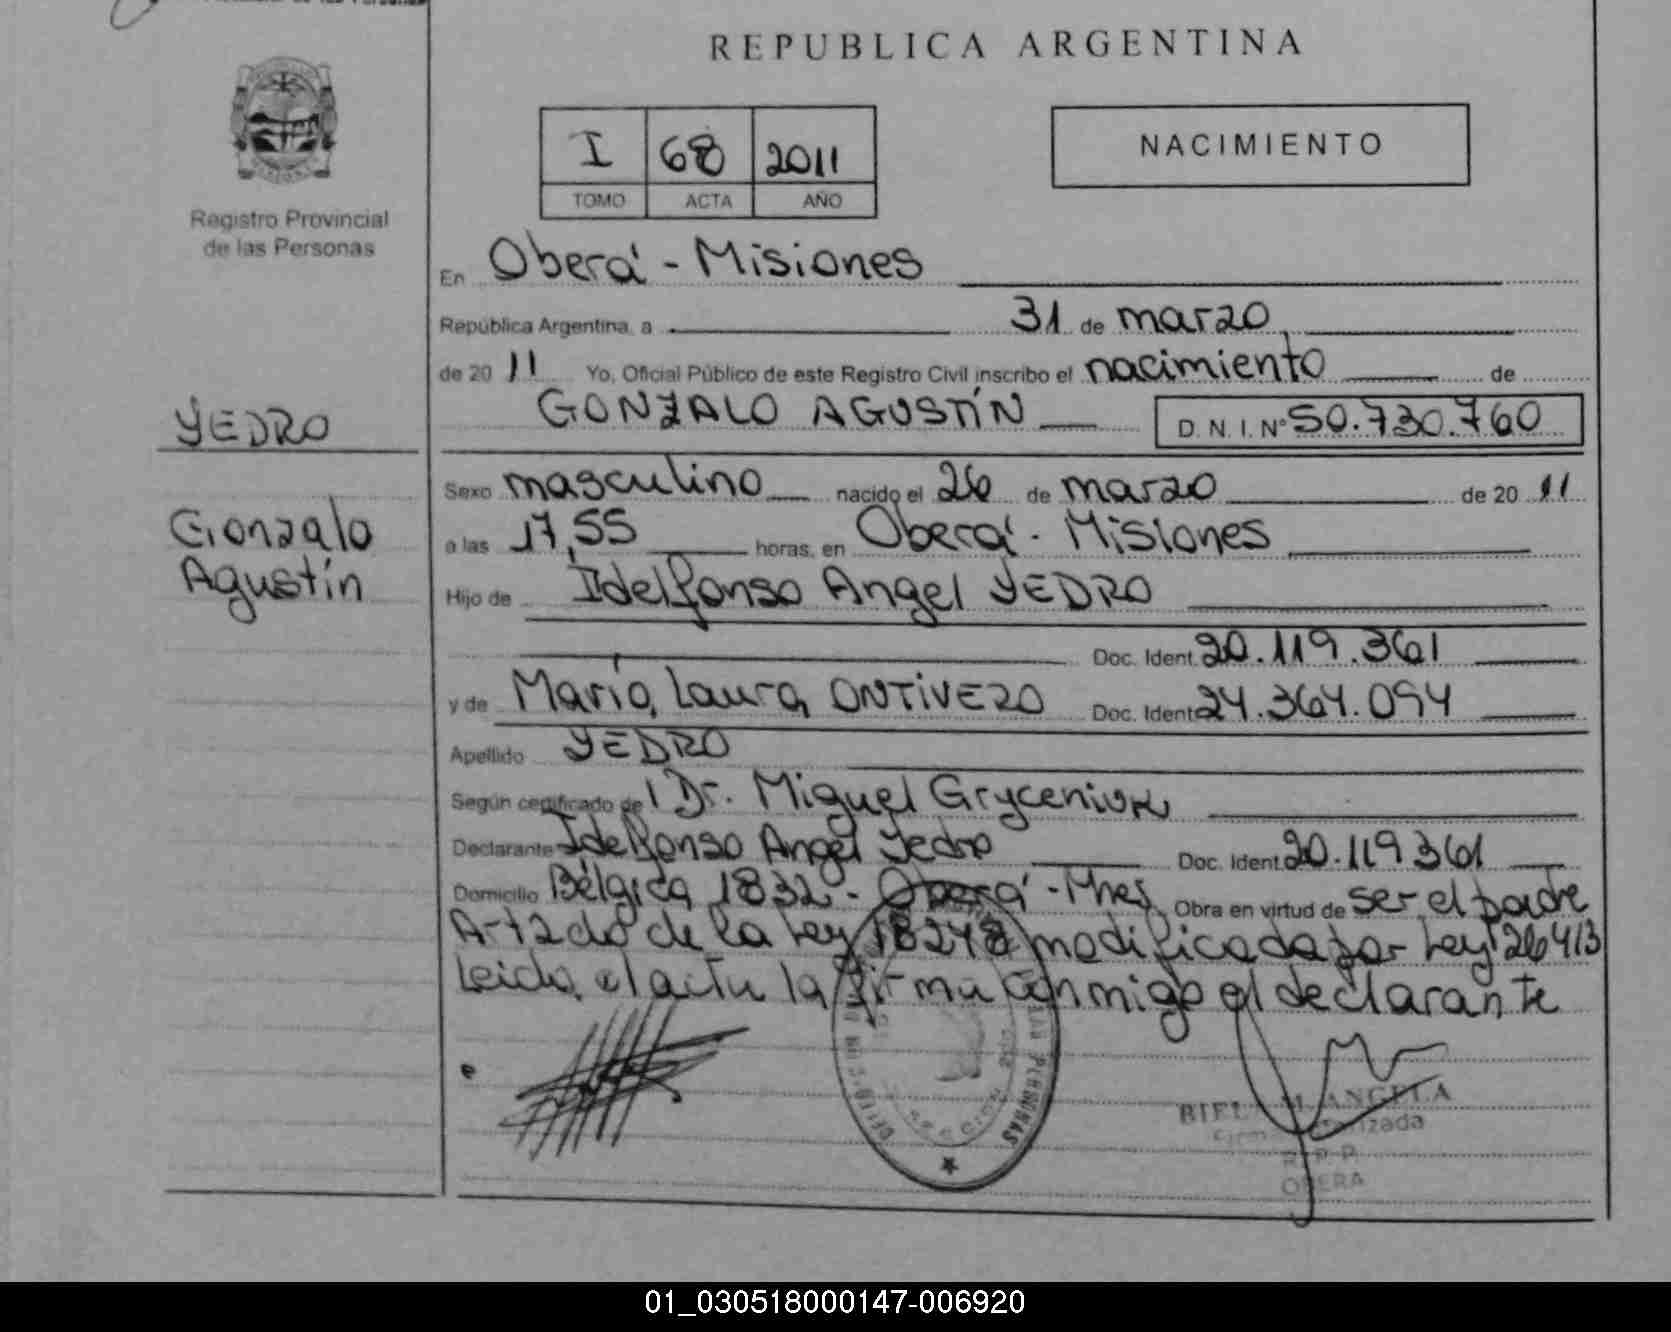 REPUBLICA ARGENTINA
I 68 2011
TOMO ACTA AÑO
NACIMIENTO
Registro Provincial
de las Personas
YEDRO
Gonzalo
Agustín
En Oberá - Misiones
República Argentina, a 31 de marzo
de 20 11 Yo, Oficial Público de este Registro Civil inscribo el nacimiento de
GONZALO AGUSTÍN D. N. I. Nº 50.730.760
Sexo masculino nacido el 26 de marzo de 20 11
a las 17,55 horas, en Oberá - Misiones
Hijo de Idelfonso Angel YEDRO
Doc. Ident. 20.119.361
y de María Laura ONTIVERO Doc. Ident. 24.364.094
Apellido YEDRO
Según certificado de Dr. Miguel Gryceniuk
Declarante Idelfonso Angel Yedro Doc. Ident. 20.119361
Domicilio Bélgica 1832 - Oberá - Mnes Obra en virtud de ser el padre
Art 2do de la Ley 18248 modificada por Ley 26413
Leida el acta la firma conmigo el declarante
PERSONAS
SECCION
BIEL M. ANGELA
R.P.P
OBERA
01_030518000147-006920